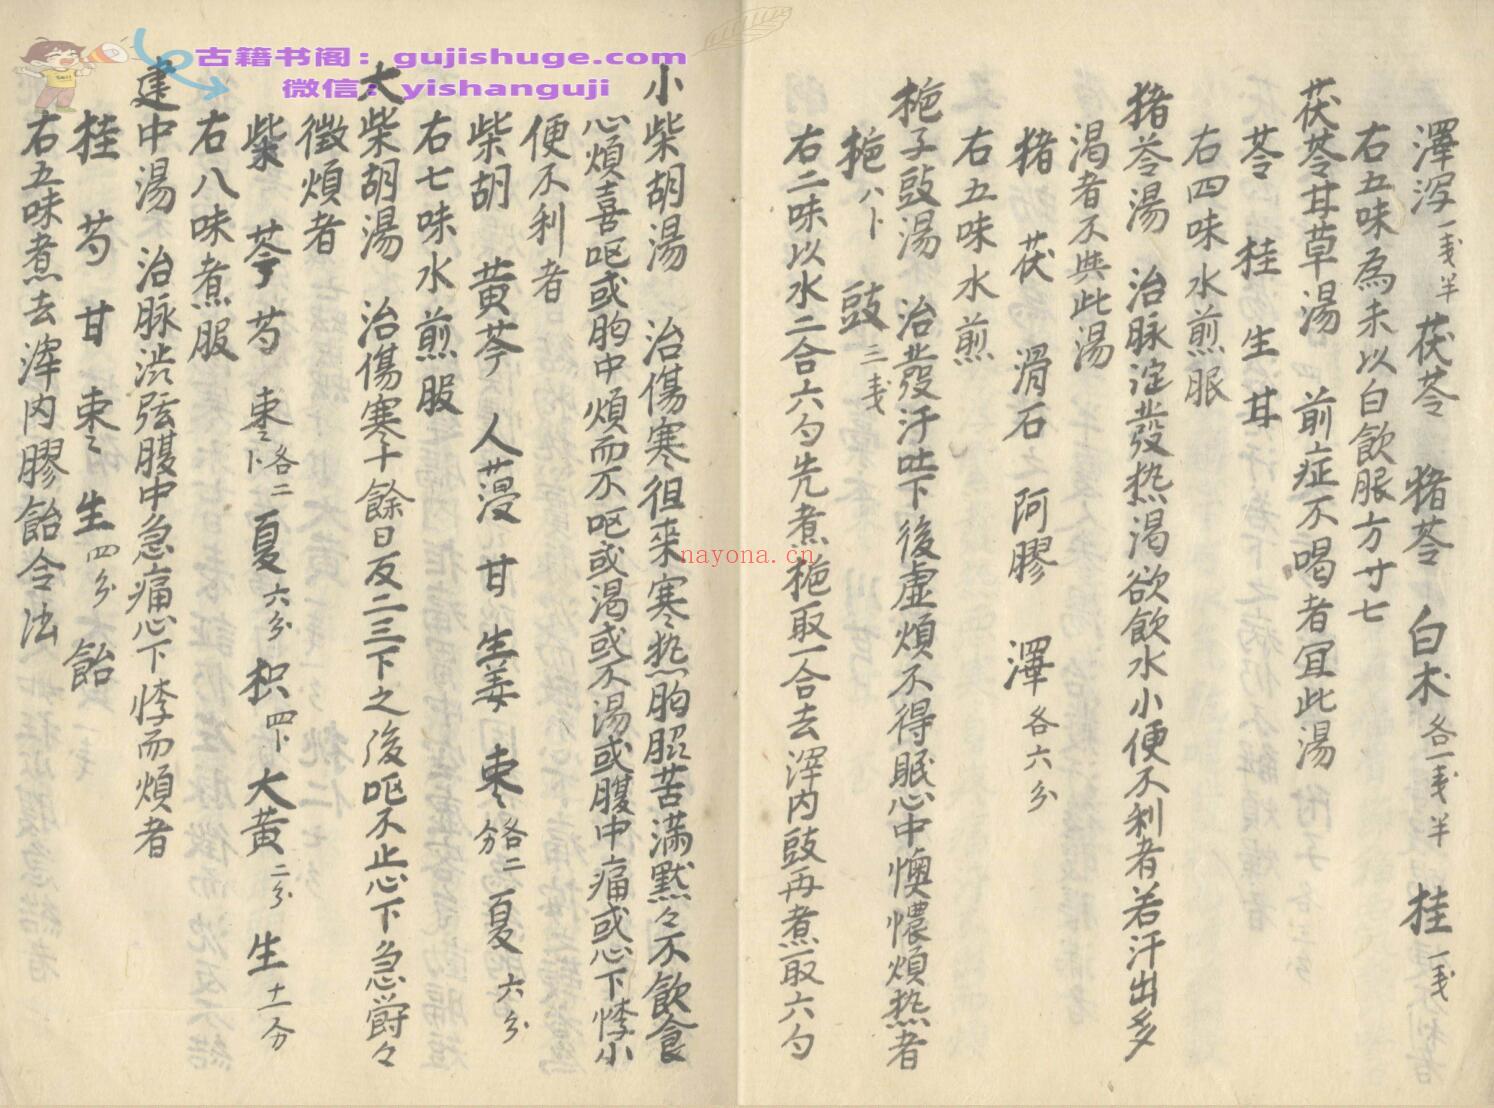 古籍书阁：gujishuge.com
微信：yishanguji
nayona.cn
澤泻一戋半 茯苓 猪苓 白术各一戋半 桂一戋
右五味為末以白飲服方寸七
茯苓甘草湯 前症不喝者宜此湯
苓 桂 生 甘
右四味水煎服
猪苓湯 治脉浮發热渴欲飲水小便不利者若汗出多
渴者不與此湯
猪 茯 滑石 阿膠 澤各六分
右五味水煎
梔子豉湯 治發汗吐下後虛煩不得眠心中懊憹煩热者
梔八卜 豉三戋
右二味以水二合六勺先煮梔取一合去滓内豉再煮取六勺
小柴胡湯 治傷寒徃来寒热胸脇苦满黙々不飲食
心煩喜呕或胸中煩而不呕或渴或不湯或腹中痛或心下悸小
便不利者
柴胡 黄芩 人薓 甘 生姜 枣各二分 夏六分
右七味水煎服
大柴胡湯 治傷寒十餘日反二三下之後呕不止心下急欝々
微煩者
柴 芩 芍 枣各二卜 夏六分 枳四卜 大黄二分 生十一分
右八味煮服
建中湯 治脉渋弦腹中急痛心下悸而煩者
桂 芍 甘 枣 生四分 飴
右五味煮去滓内膠飴令法